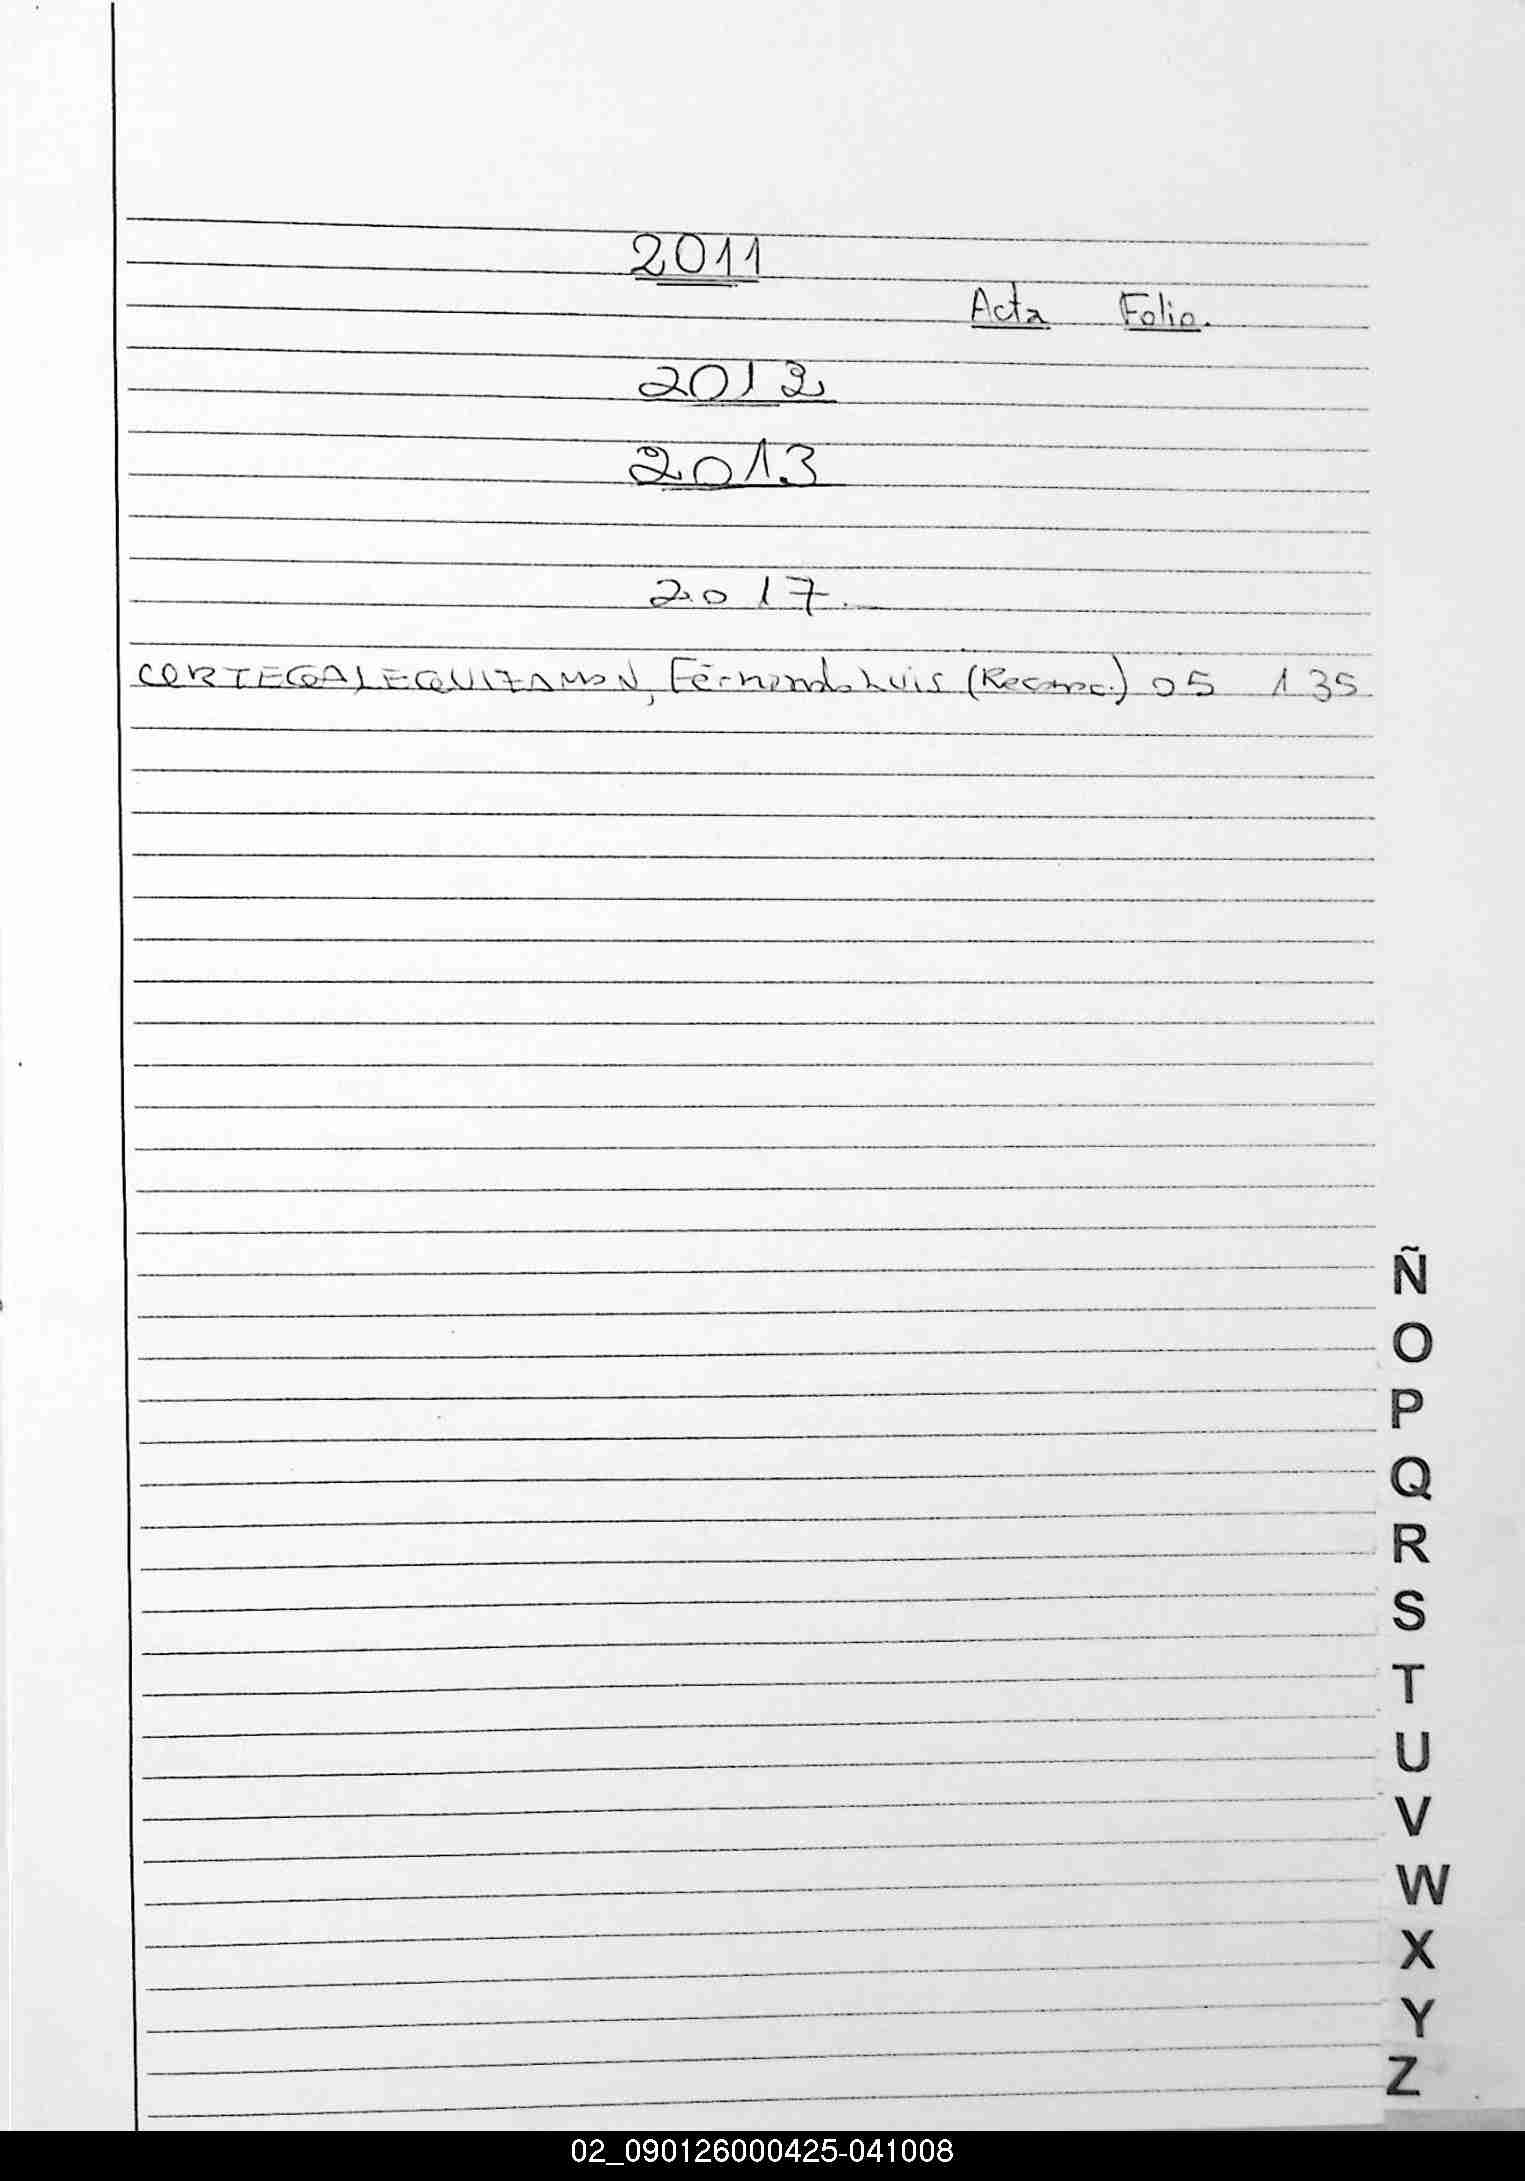 2011
Acta Folio.
2012
2013
2017.
Fernando Luis (Reconoc.) 05 135
Ñ
O
P
Q
R
S
T
U
V
W
X
Y
Z
02_090126000425-041008